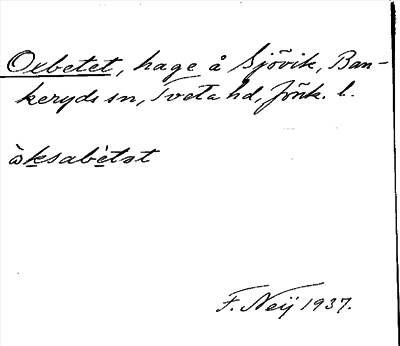 Oxbetet, hage å Sjövik, Ban-
keryds sn, Tveta hd, Jönk. l.
òksabètət
F. Neij 1937.